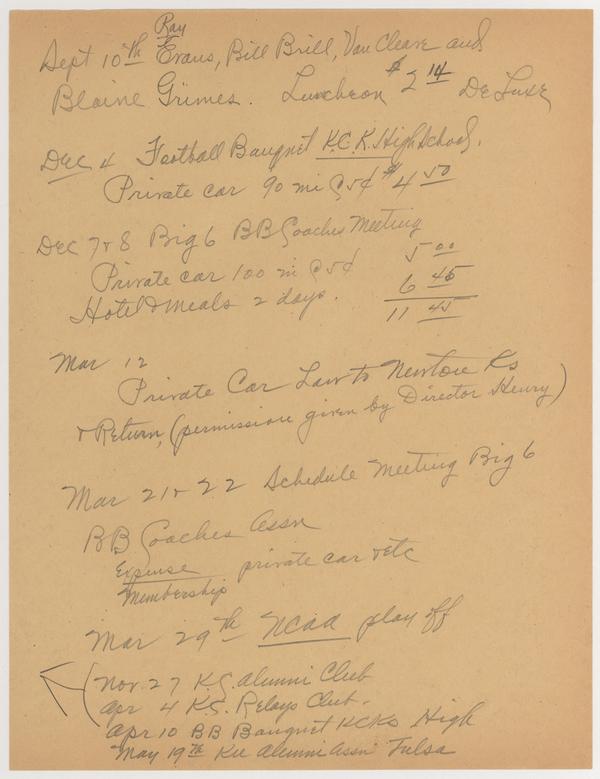 Ray
Sept 10th Evans, Bill Brill, Van Cleave and
Blaine Grimes. Luncheon $2 14 DeLuxe
Dec 4 Football Banquet K.C.K. High School.
Private car 90 mi @ 5¢ $4 50
Dec 7 & 8 Big 6 BB Coaches Meeting
Private car 100 mi @ 5¢ 5 00
Hotel & Meals 2 days. 6 45
11 45
Mar 12
Private Car Law to Newton Ks
& Return, (permission given by Director Henry)
Mar 21 & 22 Schedule Meeting Big 6
BB Coaches Assn
Expense private car & etc
Membership
Mar 29th NCAA play off
Nov. 27 K.S. Alumni Club
Apr 4 K.S. Relays Club.
Apr 10 BB Banquet KCKs High
May 19th KU Alumni Assn Tulsa